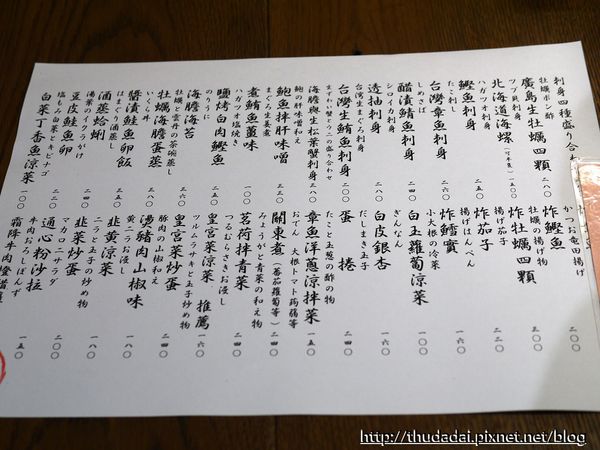 刺身四種盛り合わ
牡蠣ポン酢
廣島生牡蠣四顆 二八〇
ツブ貝刺身
北海道海螺 一五〇
ハガツオ刺身
鰹魚刺身
たこ刺し
台灣章魚刺身
しめさば
醋漬鯖魚刺身
シロイカ刺身
透抽刺身
台湾生まぐろ刺身
台灣生鮪魚刺身
まずわい蟹とうにの盛り合わせ
海膽與生松葉蟹刺身 三八〇
鮑の肝味噌和え
鮑魚拌肝味噌
まぐろ生姜煮
煮鮪魚薑味
ハガツオ塩焼き
鹽烤白肉鰹魚
のりうに
海膽海苔
牡蠣と雲丹の茶碗蒸し
牡蠣海膽蛋蒸 二六〇
いくら丼
醬漬鮭魚卵飯
はまぐり酒蒸し
酒蒸蛤蜊 二五〇
湯葉のイクラがけ
豆皮鮭魚卵 二二〇
塩もみ白菜とキビナゴ
白菜丁香魚涼菜 一〇〇
かつお竜田揚げ 二〇〇
炸鰹魚
牡蠣の揚げ物 三〇〇
炸牡蠣四顆
揚げ茄子 二二〇
炸茄子
揚げはんぺん
炸鱈寶
小大根の冷菜
白玉蘿蔔涼菜
ぎんなん
白皮銀杏
だしまき玉子
蛋捲
たこと玉葱の酢の物 一五〇
章魚洋蔥涼拌菜
おでん
關東煮 二四〇
みょうがと青菜の和え物
茗荷拌青菜 二四〇
つるむらさきお浸し
皇宮菜涼菜 推薦 一六〇
ツルムラサキと玉子炒め物
皇宮菜炒蛋
豚肉の山椒和え
燙豬肉山椒味 二四〇
黄ニラお浸し
韭黃涼菜 一八〇
ニラと玉子の炒め物
韭菜炒蛋 一八〇
マカロニサラダ
通心粉沙拉 二〇〇
牛肉おろしぽんず
霜降牛肉 一五〇
http://thudadai.pixnet.net/blog